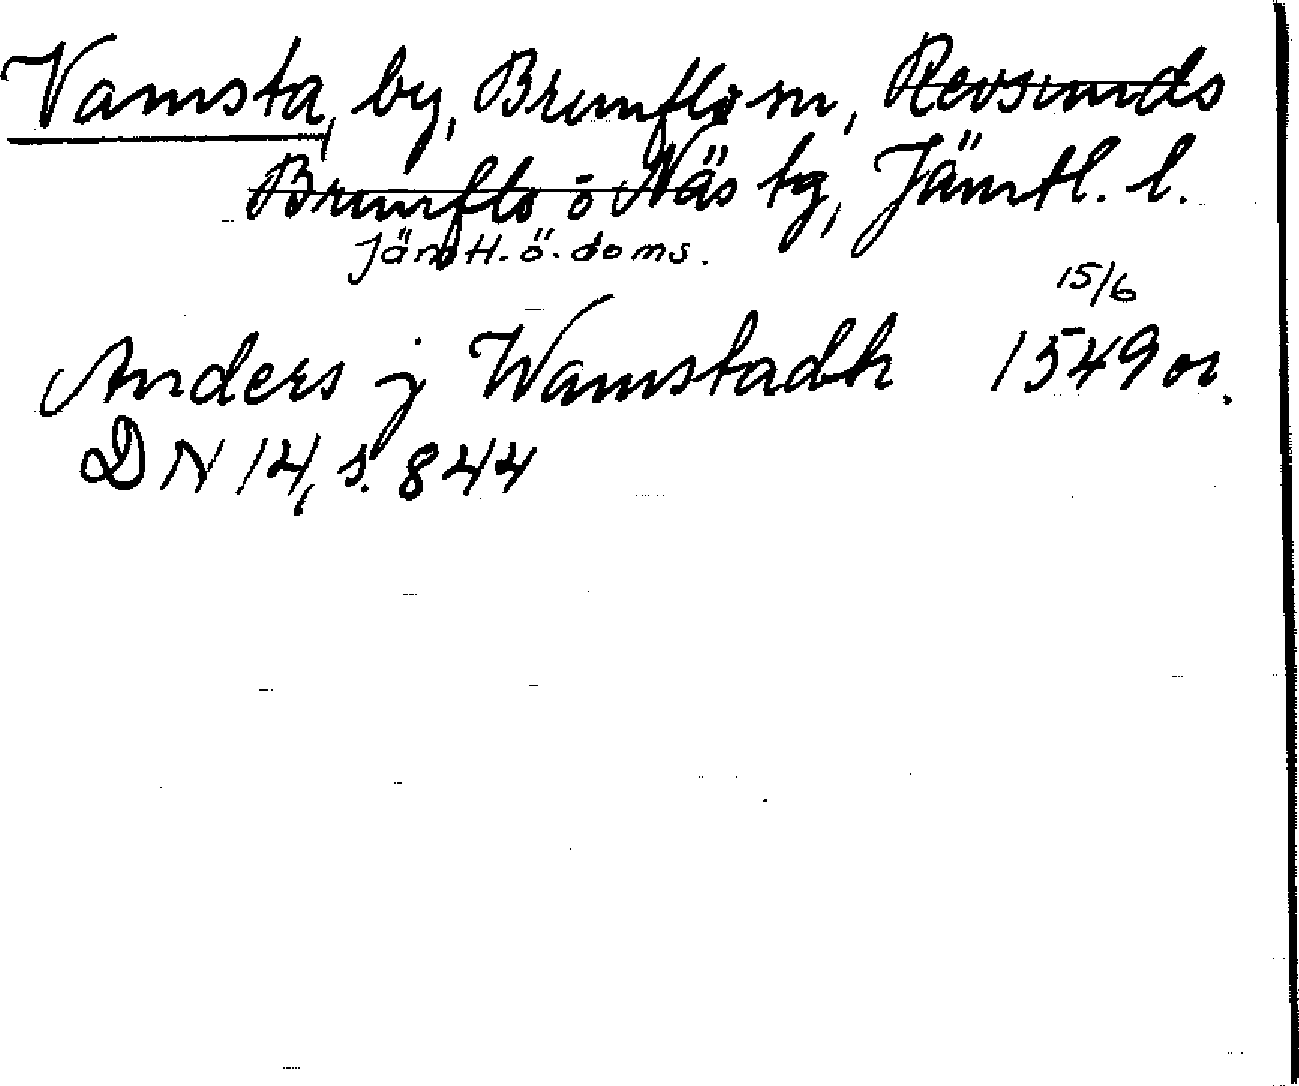 Vamsta, by, Brunflo sn, Revsunds
Brunflo o Näs tg, Jämtl. l.
Jämtl. ö. doms.
15/6
Anders j Wamstadh 1549 or.
DN 14, s. 844